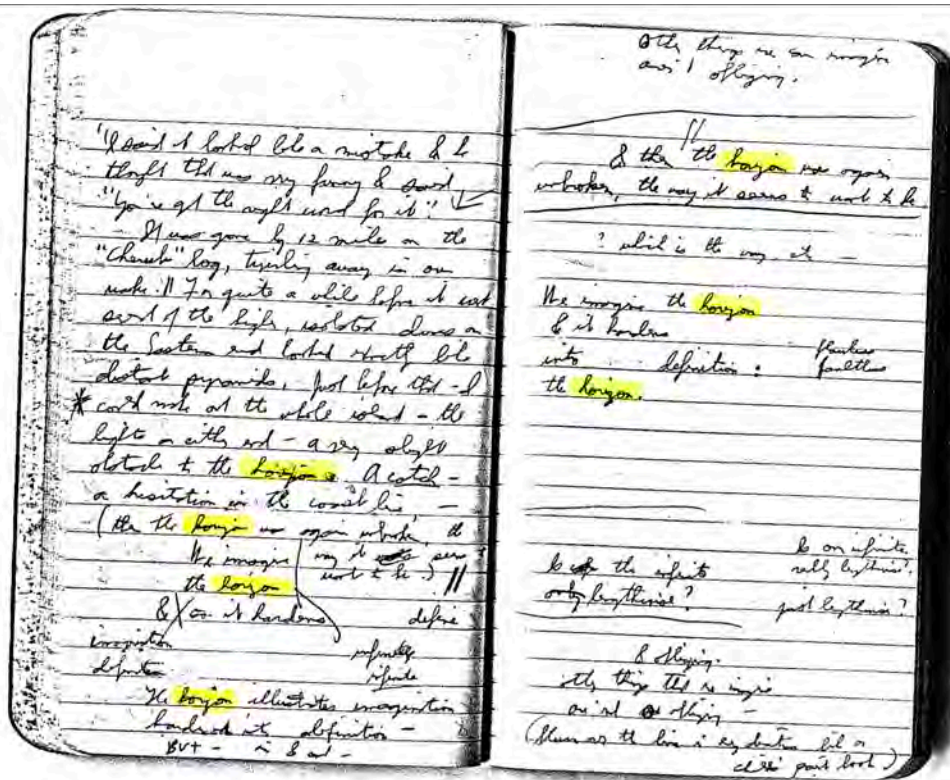 "I said it looked like a mistake & he
thought that was very funny & said,
"You've got the right word for it."
— It was gone by 12 miles on the
"Cherub" log, twirling away in our
wake. // For quite a while before it went
the high, isolated dunes on
the Eastern end looked exactly like
distant pyramids, just before that – I
* could make out the whole island – the
lights on either end – a very slight
obstacle to the horizon. A catch –
a hesitation in the coast line, –
(then the horizon was again unbroken, the
way it seems to
want to be.) //
We imagine
the horizon
& it hardens
define
imagination
infinitely
definition
infinite
The horizon illustrates imagination
hardened into definition –
BUT – is & and –
Other things we can imagine
aren't obliging.
//
& then the horizon was again
unbroken, the way it seems to want to be
? which is the way it –
We imagine the horizon
& it hardens
into definition :
flawless
faultless
the horizon.
Is the infinite
only lengthwise?
Is an infinite
really lengthwise?
just lengthwise?
& obliging.
other things that we imagine
are not so obliging –